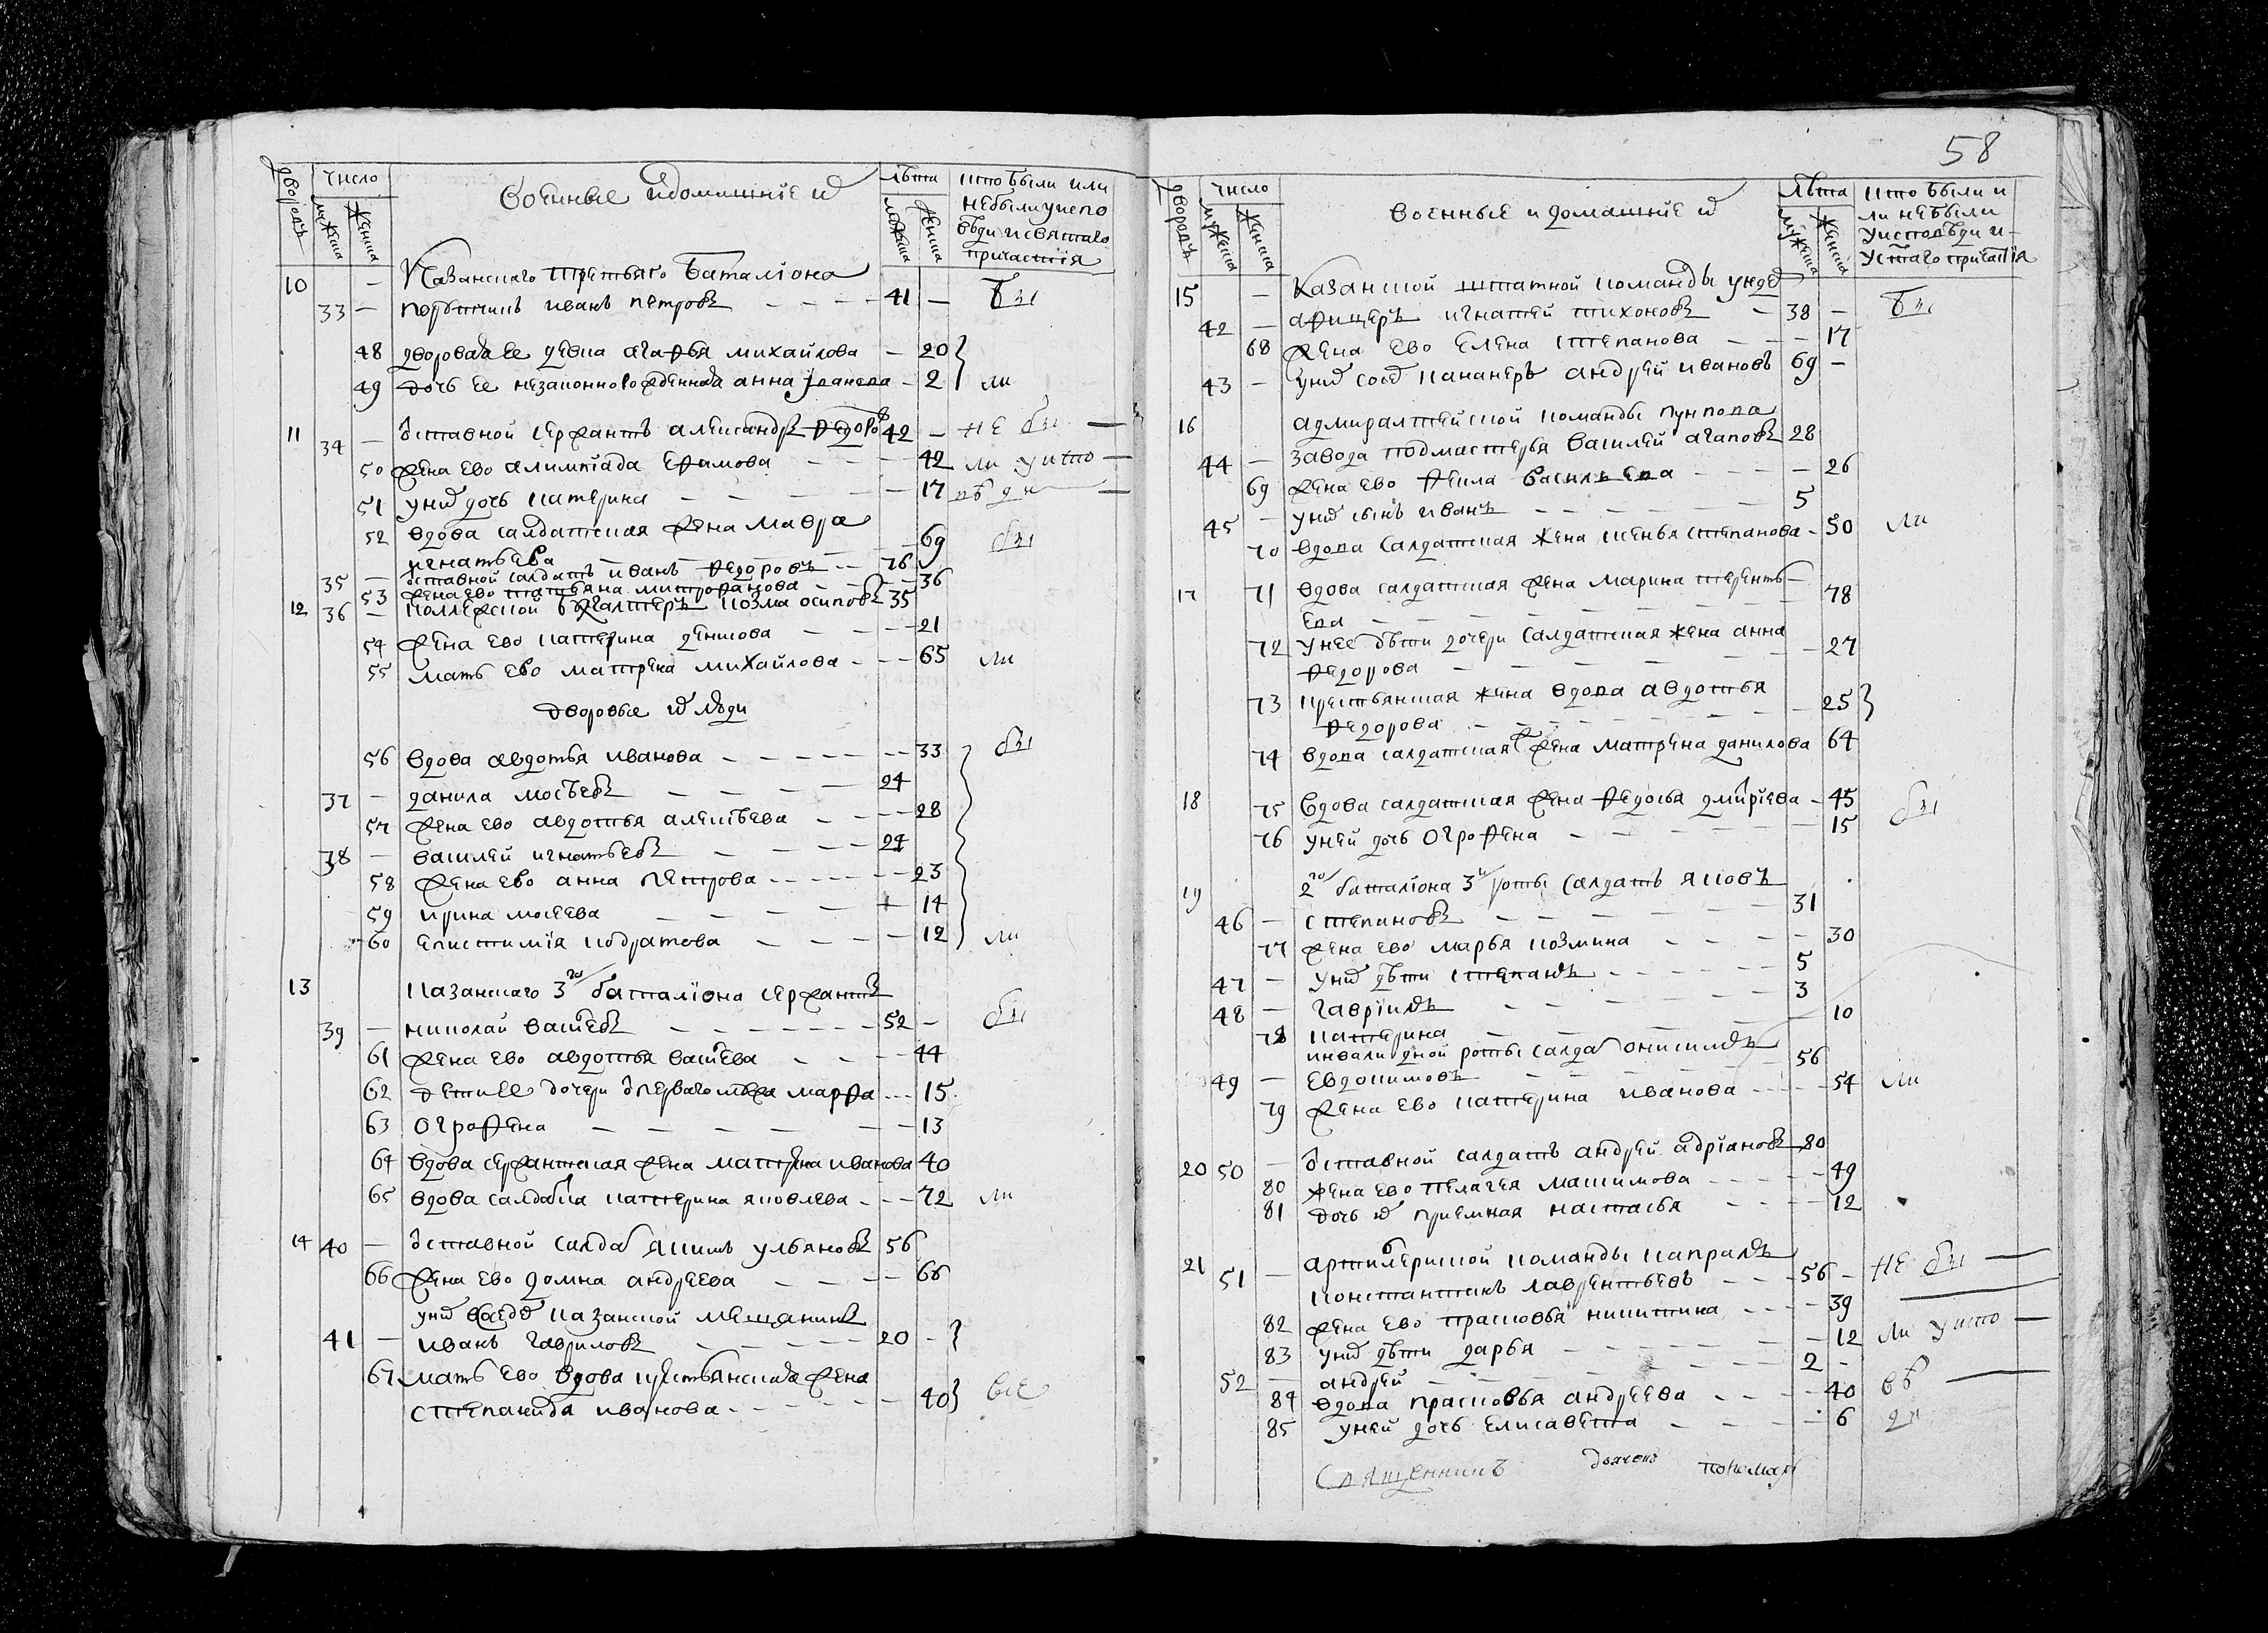 дворовъ число военные и домашние их лѣта кто были или
мужеска женска мужеска женска не были у испо
вѣди и святаго
причастия
10 — Казанскаго третьяго баталиона
33 — порутчикъ иванъ петровъ 41 — бы
48 дворовая ее девка агафья михайлова — 20
49 дочь ее незаконнорожденная анна — 2 ли
11 34 — отставной сержантъ александръ федоровъ 42 — не бы —
50 жена ево алимпиада ефимова — 42 ли у испо —
51 у них дочь катерина — 17 вѣди —
52 вдова салдатская жена мавра
игнатьева — 69 бы
35 — отставной салдатъ иванъ федоровъ 76
53 жена ево татьяна митрофанова — 36
12 36 — коллежской бухгалтеръ козма осиповъ 35
54 жена ево катерина денисова — 21
55 мать ево матрена михайлова — 65 ли
дворовые их люди
56 вдова авдотья иванова — 33 бы
37 — данила мосѣевъ 24
57 жена ево авдотья алексѣева — 28
38 — василей игнатьевъ 24
58 жена ево анна петрова — 23
59 ирина мосеева — 14
60 епистимия кодратова — 12 ли
13 казанскаго 3го баталиона сержантъ
39 — николай васильевъ 52 — бы
61 жена ево авдотья васильева — 44
62 дети ее дочери от перваго мужа марфа — 15
63 огрофена — 13
64 вдова сержантская жена матрена иванова 40
65 вдова салдатка катерина яковлева — 72 ли
14 40 — отставной салдат якимъ ульяновъ 56
66 жена ево домна андреева — 66
у них казанской мещанинъ
41 — иванъ гавриловъ 20 —
67 мать ево вдова крестьянская жена
степанида иванова — 40 все
58
дворовъ число военные и домашние их лѣта кто были и
мужеска женска мужеска женска ли не были
у исповѣди и
у стаго причастия
15 — Казанской штатной команды ундер
42 — афицеръ игнатей тихоновъ — 38 — бы
68 жена ево елена степанова — 17
43 — у них канонеръ андрей ивановъ 69 —
16 адмиралтейской команды
44 — завода подмастерья василей агаповъ 28
69 жена ево фекла васильева — 26
45 — у них сынъ иванъ 5
70 вдова салдатская жена ксенья степанова — 50 ли
17 71 вдова салдатская жена марина теренть
ева — 78
72 у нее дѣти дочери салдатская жена анна
федорова — 27
73 крестьянская жена вдова авдотья
федорова — 25
74 вдова салдатская жена матрена данилова 64
18 75 вдова салдатская жена федосья дмитриева — 45
76 у ней дочь огрофена — 15 бы
19 2го баталиона 3й роты салдатъ яковъ
46 — степановъ 31
77 жена ево марья козмина — 30
47 — у них дѣти степанъ 5
48 — гаврилъ 3
78 катерина 10
инвалидной роты салдат онисимъ
49 — евдокимовъ 56
79 жена ево катерина иванова — 54 ли
20 50 — отставной салдатъ андрей адриановъ 80
80 жена ево пелагея максимова — 49
81 дочь их приемная настасья — 12
21 артилерииской команды капралъ
51 — константинъ лаврентьевъ 56 — не бы —
82 жена ево прасковья никитина — 39
83 у них дѣти дарья — 12 ли у испо —
52 — андрей 2 —
84 вдова прасковья андреева — 40 вѣ —
85 у ней дочь елисавета — 6 ди
Священникъ дьяконъ пономарь